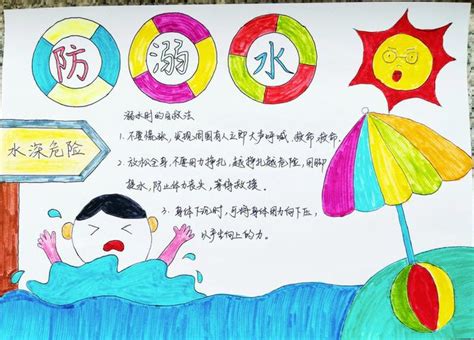 防溺水
水深危险
溺水时的自救法
1、不要慌张，发现周围有人立即大声呼喊，救命，救命.
2、放松全身，不要用力挣扎，越挣扎越危险，用脚
踢水，防止体力丧失，等待救援。
3、身体下沉时，可将身体用力向下压，
以产生向上的力。